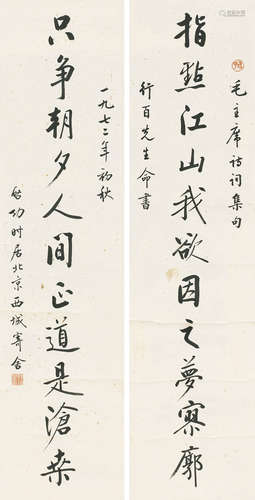 毛主席诗词集句
指點江山我欲因之夢寥廓
行百先生命書
一九七二年初秋
只争朝夕人間正道是滄桑
啟功时居北京西城寄舍